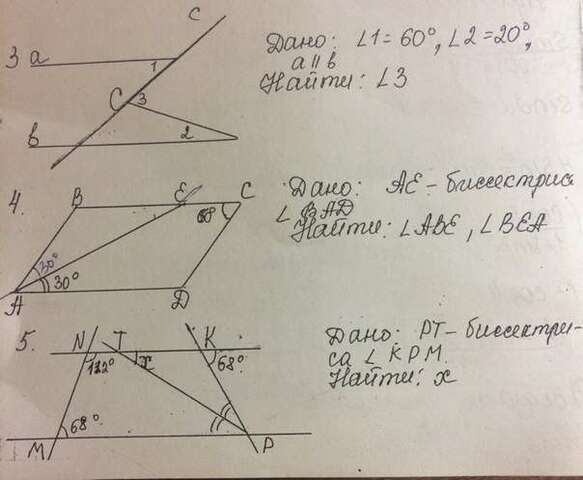 3 a
C
1
C
3
в
2
Дано: ∠1=60°, ∠2=20°,
a ∥ в
Найти: ∠3
4.
B
E
C
60°
30°
30°
A
D
Дано: AE – биссектриса
∠BAD
Найти: ∠ABE, ∠BEA
5.
N
T
K
112°
x
68°
68°
M
P
Дано: PT – биссектри-
са ∠KPM.
Найти: x